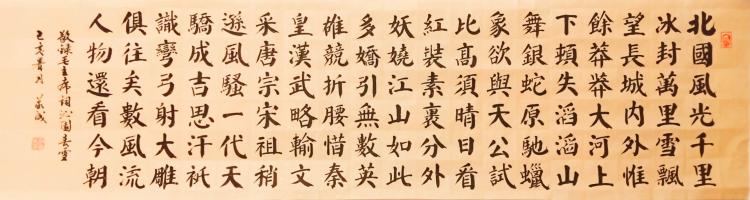 北國風光千里
冰封萬里雪飄
望長城內外惟
餘莽莽大河上
下頓失滔滔山
舞銀蛇原馳蠟
象欲與天公試
比高須晴日看
紅裝素裹分外
妖嬈江山如此
多嬌引無數英
雄競折腰惜秦
皇漢武略輸文
采唐宗宋祖稍
遜風騷一代天
驕成吉思汗祇
識彎弓射大雕
俱往矣數風流
人物還看今朝
敬録毛主席詞沁園春雪
己亥